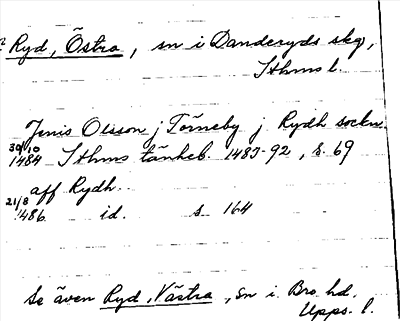 Ryd, Östra, sn i Danderyds skg,
Sthms l.
Jenis Olsson j Törneby j Rydh sockn
30/10 1484 Sthms tänkeb. 1483-92, s. 69
aff Rydh.
21/8 1486 id. s 164
Se även Ryd, Västra, sn i Bro hd.
Upps. l.